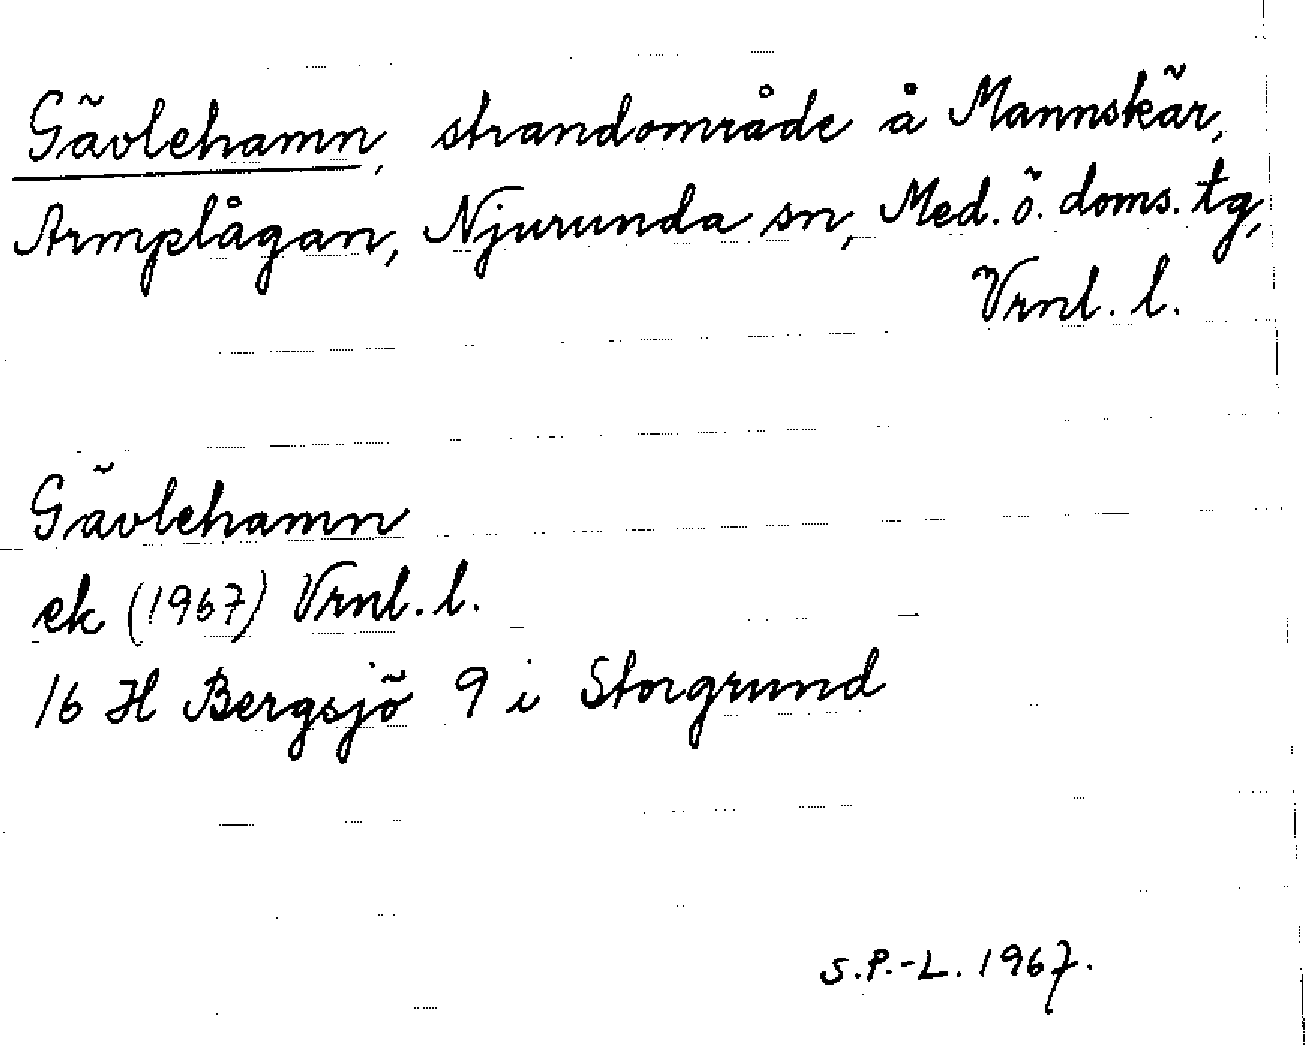 Gävlehamn, strandområde å Mannskär,
Armplågan, Njurunda sn, Med. ö. doms. tg,
Vrnl. l.
Gävlehamn
ek (1967) Vrnl. l.
16 H Bergsjö 9 i Storgrund
S.P.-L. 1967.